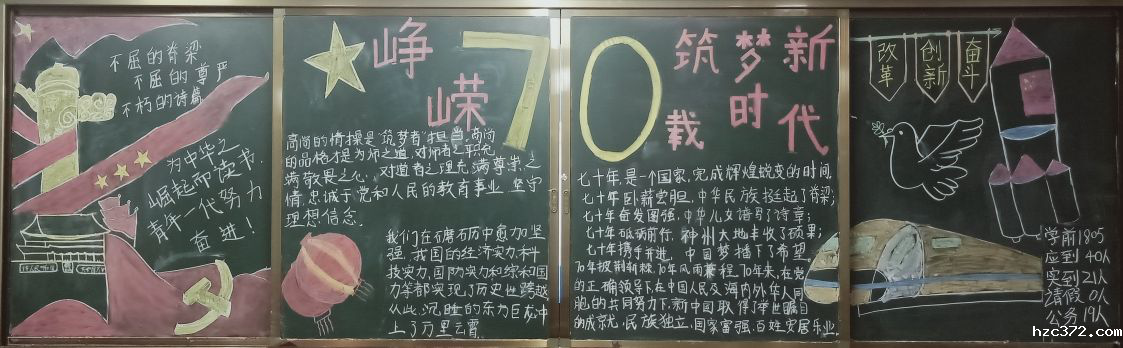 不屈的脊梁
不屈的尊严
不朽的诗篇
为中华之
崛起而读书
青年一代努力
奋进!
峥
嵘
70
载
筑梦新
时代
高尚的情操是"筑梦者"担当,高尚
的品格才是为师之道,对师者之职充
满敬畏之心,对道者之理充满尊崇之
情,忠诚于党和人民的教育事业,坚守
理想信念。
我们在磨石历中愈加坚
强,我国的经济实力,科
技实力,国防实力和综和国
力等都实现了历史性跨越
从此,沉睡的东方巨龙冲
上了万里云霄。
七十年,是一个国家,完成辉煌蜕变的时间,
七十年卧薪尝胆,中华民族挺起了脊梁;
七十年奋发图强,中华儿女谱写了诗章;
七十年砥砺前行,神州大地丰收了硕果;
七十年携手并进,中国梦播下了希望。
70年披荆斩棘,70年风雨兼程,70年来,在党
的正确领导下,在中国人民及海内外华人同
胞的共同努力下,新中国取得了举世瞩目
的成就,民族独立,国家富强,百姓安居乐业。
改革
创新
奋斗
学前1805
应到 40人
实到 21人
请假 0人
公务 19人
hzc372.com